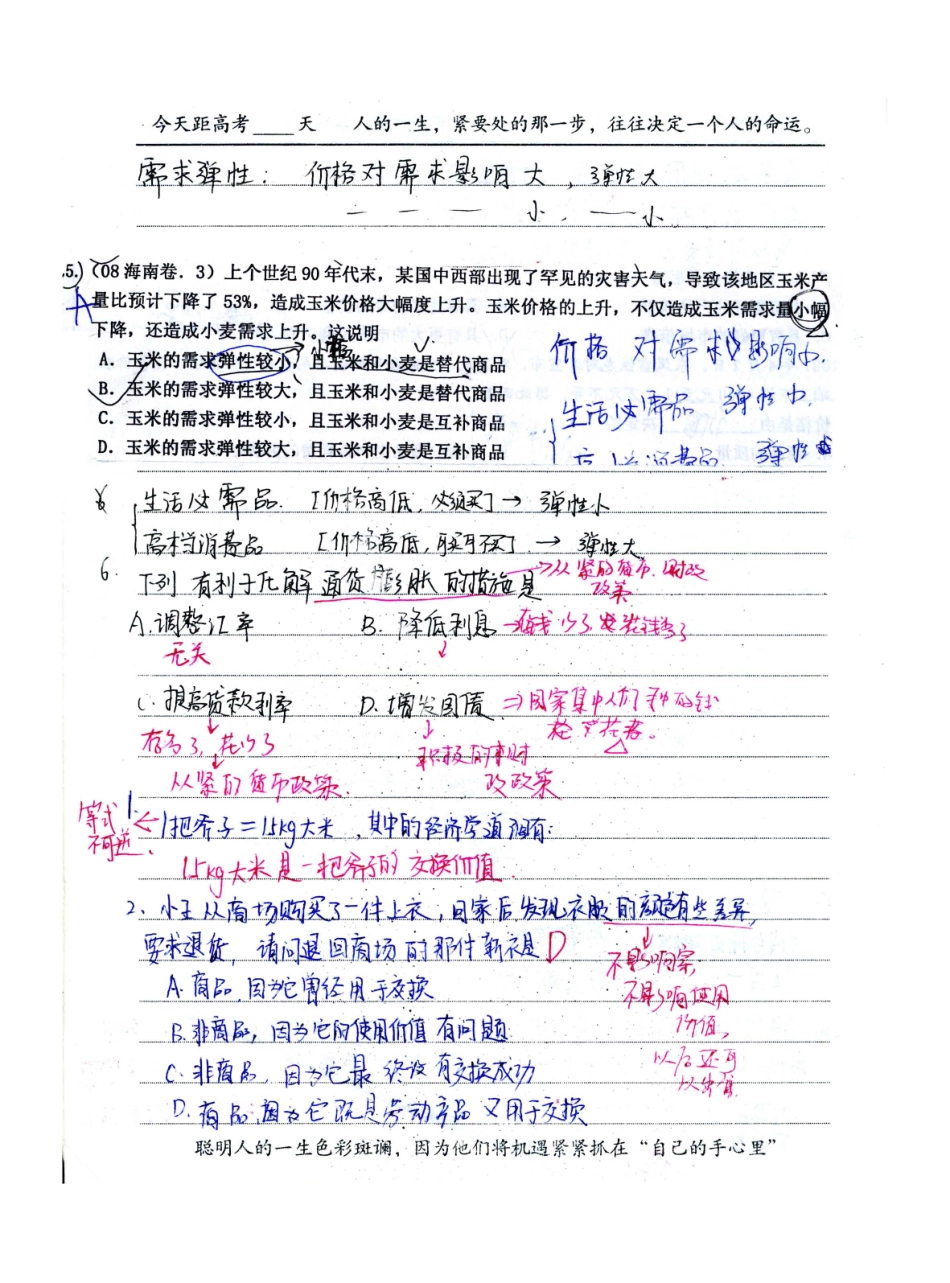 今天距高考____天 人的一生，紧要处的那一步，往往决定一个人的命运。
需求弹性： 价格对需求影响大，弹性大
一 一 一 小，一 小
5.（08海南卷．3）上个世纪90年代末，某国中西部出现了罕见的灾害天气，导致该地区玉米产
A 量比预计下降了53%，造成玉米价格大幅度上升。玉米价格的上升，不仅造成玉米需求量小幅
下降，还造成小麦需求上升。这说明
A．玉米的需求弹性较小，且玉米和小麦是替代商品
B．玉米的需求弹性较大，且玉米和小麦是替代商品
C．玉米的需求弹性较小，且玉米和小麦是互补商品
D．玉米的需求弹性较大，且玉米和小麦是互补商品
价格对需求影响小.
生活必需品 弹性小.
生活必需品. [价格高低，必须买] → 弹性小
高档消费品 [价格高低，可买可不买] → 弹性大
6. 下列有利于化解通货膨胀的措施是
→从紧的货币.财政
政策
A.调整汇率 B. 降低利息
无关
C.提高贷款利率 D.增发国债 ⇒国家集中人们手中的钱
存多了，花少了
积极的财
政政策
从紧的货币政策.
等式
不可逆.
1. 1把斧子=15kg大米，其中的经济学道理有:
15kg大米是一把斧子的交换价值.
2、小王从商场购买了一件上衣，回家后发现衣服的颜色有些差异,
要求退货，请问退回商场的那件新衣是 D
不影响穿,
不影响使用
价值,
以后还可
以出售
A. 商品，因为它曾经用于交换
B.非商品，因为它的使用价值有问题
C. 非商品，因为它最终没有交换成功
D. 商品，因为它既是劳动产品又用于交换
聪明人的一生色彩斑斓，因为他们将机遇紧紧抓在“自己的手心里”